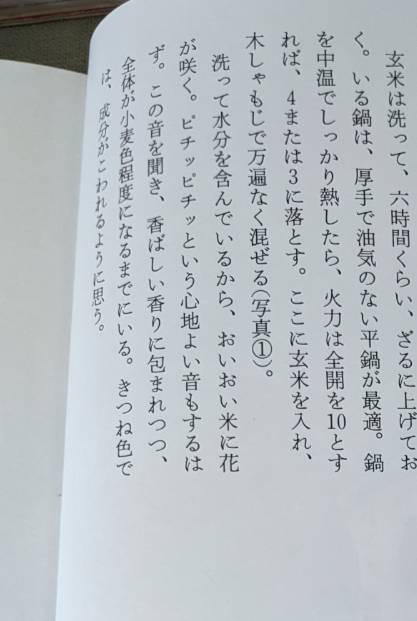 玄米は洗って、六時間くらい、ざるに上げてお
く。いる鍋は、厚手で油気のない平鍋が最適。鍋
を中温でしっかり熱したら、火力は全開を10とす
れば、4または3に落とす。ここに玄米を入れ、
木しゃもじで万遍なく混ぜる(写真①)。
洗って水分を含んでいるから、おいおい米に花
が咲く。ピチッピチッという心地よい音もするは
ず。この音を聞き、香ばしい香りに包まれつつ、
全体が小麦色程度になるまでにいる。きつね色で
は、成分がこわれるように思う。